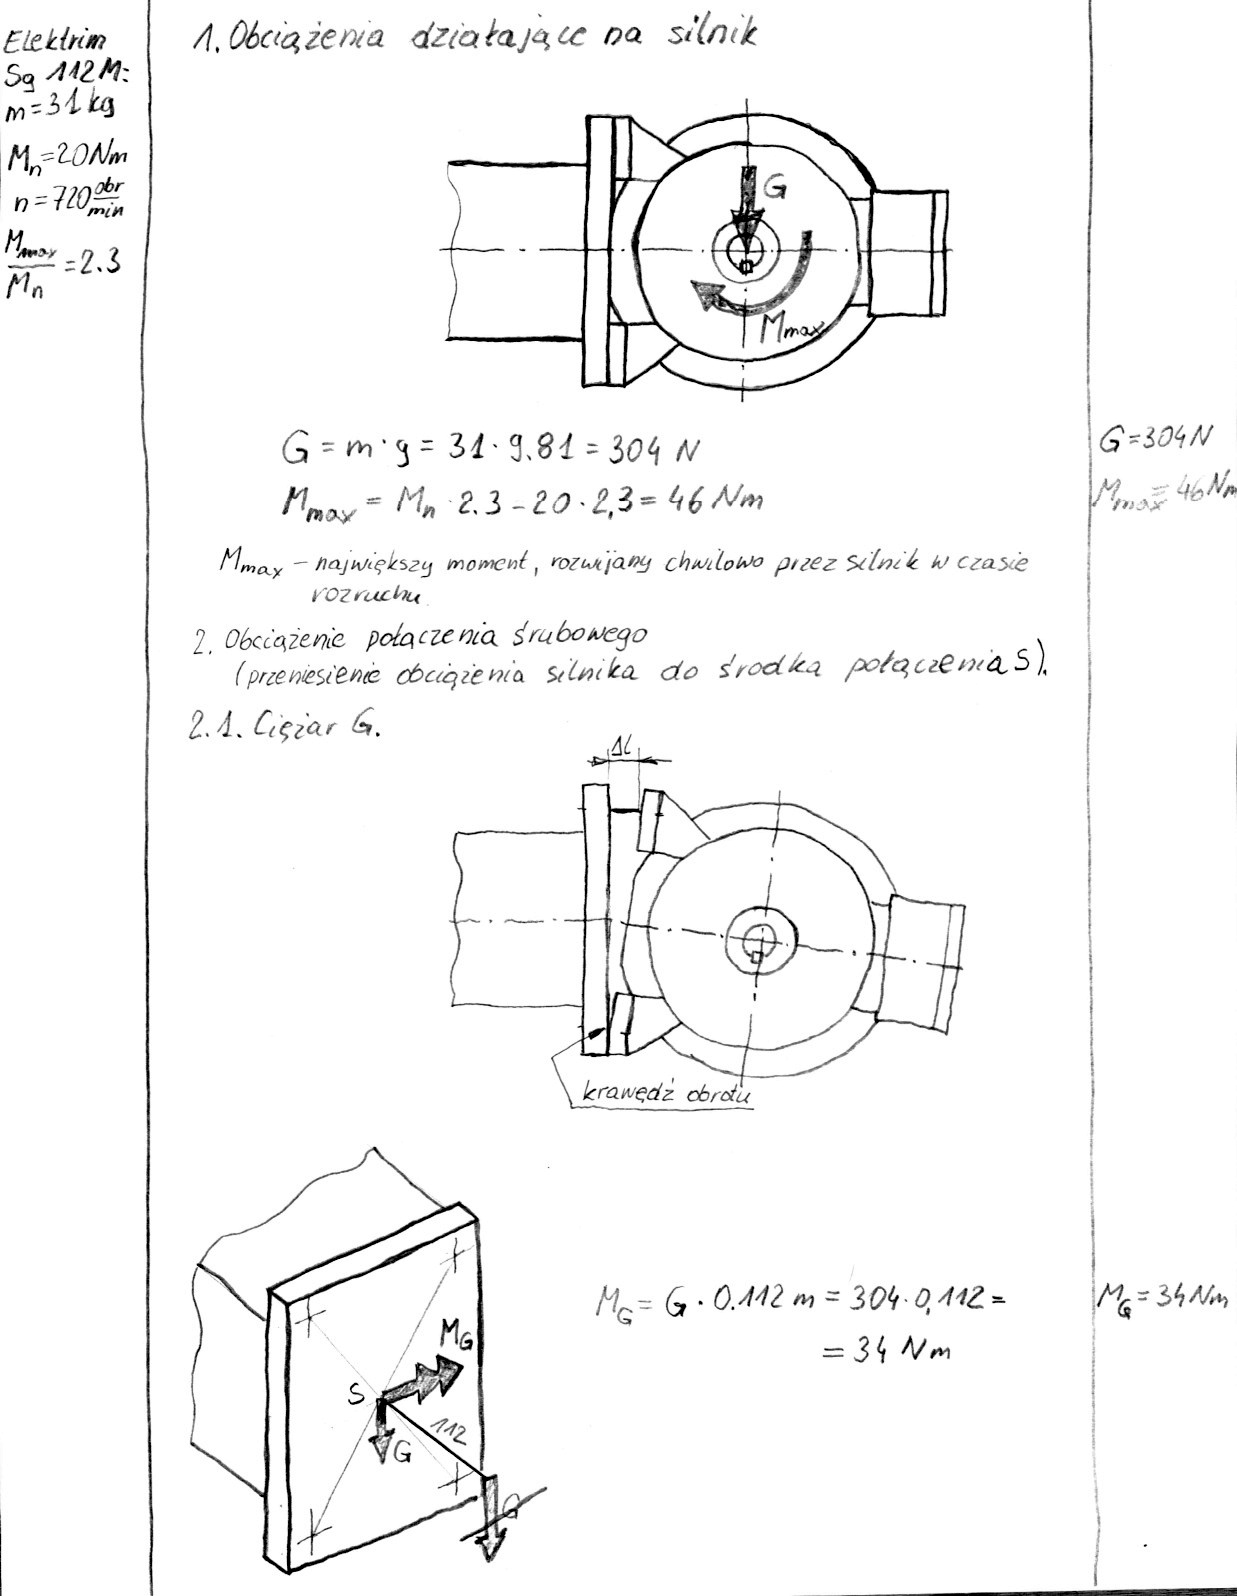 Elektrim
Sg 112M:
m=31kg
Mn=20Nm
n=720 obr/min
Mmax/Mn=2.3
1. Obciążenia działające na silnik
G
Mmax
G = m·g = 31·9.81 = 304 N
G=304N
Mmax = Mn·2.3 - 20·2,3 = 46 Nm
Mmax = 46Nm
Mmax – największy moment, rozwijany chwilowo przez silnik w czasie
rozruchu.
2. Obciążenie połączenia śrubowego
(przeniesienie obciążenia silnika do środka połączenia S).
2.1. Ciężar G.
Δl
krawędź obrotu
MG
S
G
112
G
MG = G · 0.112 m = 304·0,112 =
= 34 Nm
MG = 34Nm